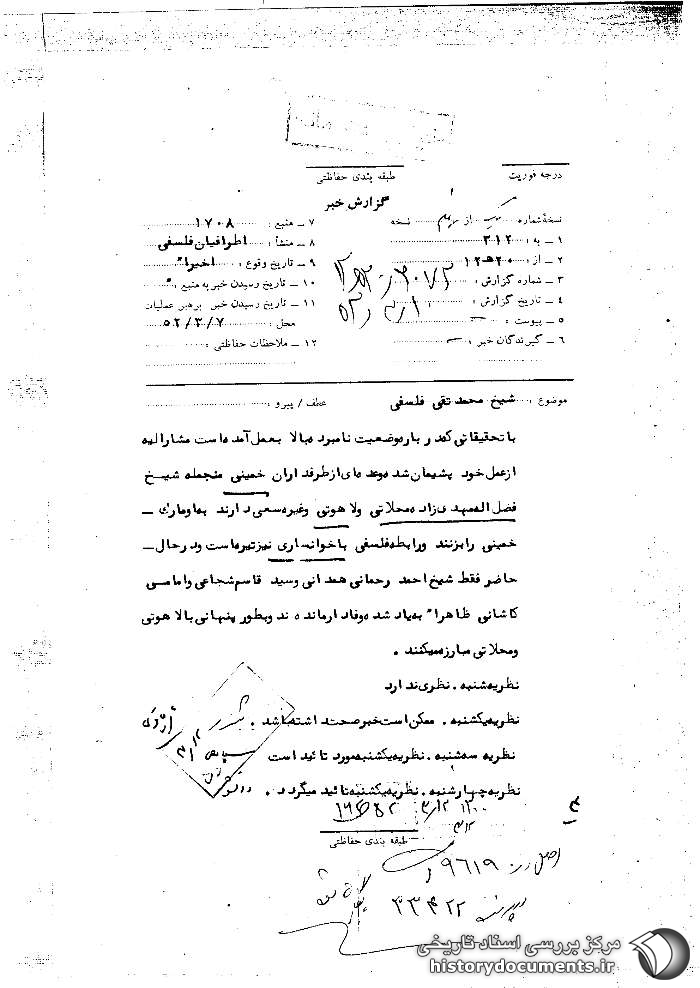 درجه فوریت
طبقه بندی حفاظتی
گزارش خبر
نسخهٔ شماره یک از نسخه
۱ ـ به : ۳۱۲
۲ ـ از : ۲۰ ه ۱۲
۳ ـ شماره گزارش :
۴ ـ تاریخ گزارش :
۵ ـ پیوست : ـ
۶ ـ گیرندگان خبر : ـ
۷ ـ منبع : ۱۷۰۸
۸ ـ منشأ : اطرافیان فلسفی
۹ ـ تاریخ وقوع : اخیرا"
۱۰ ـ تاریخ رسیدن خبر به منبع : "
۱۱ ـ تاریخ رسیدن خبر برهبر عملیات
محل : ۵۲/۳/۷
۱۲ ـ ملاحظات حفاظتی :
موضوع : شیخ محمد تقی فلسفی
عطف / پیرو :
با تحقیقاتی که در باره وضعیت نامبرده بالا بعمل آمده است مشارالیه
از عمل خود پشیمان شده وعده ای از طرفداران خمینی منجمله شیخ
فضل اله مهدی زاده محلاتی ولاهوتی وغیره سعی دارند بهاومارک ـ
خمینی رابزنند ورابطه فلسفی باخوانساری نیز تیره است ودرحال ـ
حاضر فقط شیخ احمد رحمانی همدانی وسید قاسم شجاعی وامامی
کاشانی ظاهرا" به یاد شده وفادار مانده اند وبطور پنهانی بالاهوتی
ومحلاتی مبارزه میکنند .
نظریه شنبه . نظری ندارد
نظریه یکشنبه . ممکن است خبر صحت داشته باشد .
نظریه سه شنبه . نظریه یکشنبه مورد تائید است
نظریه چهارشنبه . نظریه یکشنبه تائید میگردد .
طبقه بندی حفاظتی
۹۶۱۹
۳۳۴۲۲
مرکز بررسی اسناد تاریخی
historydocuments.ir